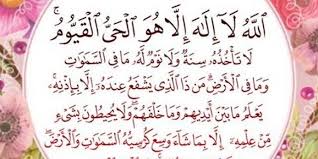 ٱللَّهُ لَآ إِلَٰهَ إِلَّا هُوَ ٱلْحَىُّ ٱلْقَيُّومُ ۚ
لَا تَأْخُذُهُۥ سِنَةٌ وَلَا نَوْمٌ لَّهُۥ مَا فِى ٱلسَّمَٰوَٰتِ
وَمَا فِى ٱلْأَرْضِ ۗ مَن ذَا ٱلَّذِى يَشْفَعُ عِندَهُۥٓ إِلَّا بِإِذْنِهِۦ ۚ
يَعْلَمُ مَا بَيْنَ أَيْدِيهِمْ وَمَا خَلْفَهُمْ ۖ وَلَا يُحِيطُونَ بِشَىْءٍ
مِّنْ عِلْمِهِۦٓ إِلَّا بِمَا شَآءَ ۚ وَسِعَ كُرْسِيُّهُ ٱلسَّمَٰوَٰتِ وَٱلْأَرْضَ ۖ